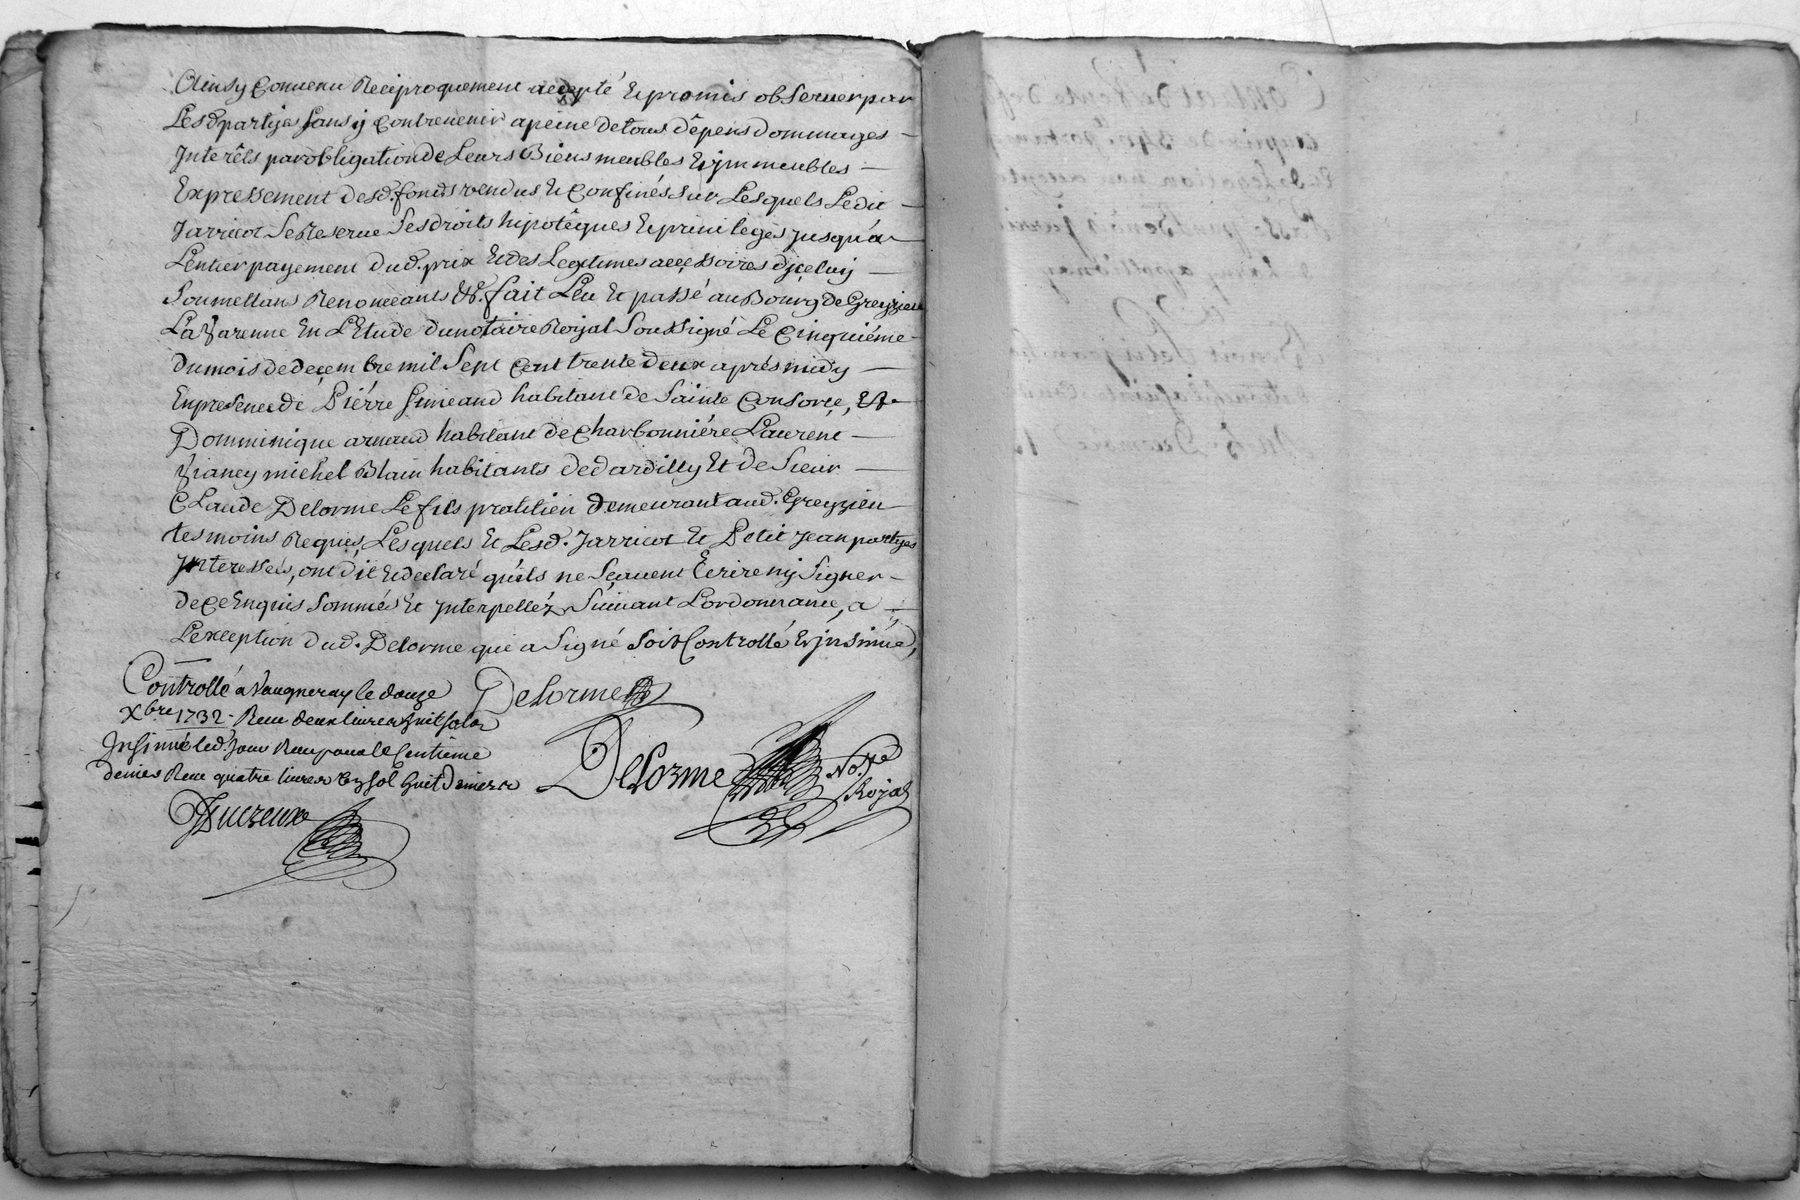 Ainsy Convenu Reciproquement accepté Et promis observer par
Lesd partyes sans y contrevenir a peine de tous dêpens dommages
Interêts par obligation de Leurs Biens meubles Et jmmeubles
Expressement desd. fonds vendus Et Confinés sur Lesquels Ledit
Jarricot se Reserve ses droits hipotêques Et privileges jusqu'a
L'entier payement dud. prix Et des Legitimes accessoires d'jceluy
soumettans Renonceants &c. fait Leu Et passé au Bourg de Greyzieu
La Varenne En L'Etude du notaire Royal soussigné Le cinquiéme
du mois de decembre mil sept cent trente deux aprés midy
En presence de Piérre Simeand habitant de sainte Consorce, Et
Domminique arnaud habitant de charbonniére Laurent
michel Blain habitants de dardilly Et de sieur
Claude Delorme Le fils pratitien demeurant aud. Greyzieu
tesmoins Requis, Lesquels Et Lesd. Jarricot Et Petit Jean partyes
Interessés, ont dit Et declaré qu'ils ne sçavent Ecrire ny signer
de ce Enquis sommés Et Interpellez suivant L'ordonnance, a
L'exception dud. Delorme qui a signé soit Controllé Et jnsinué,
Delorme
Controllé a Vaugneray le douze
Xbre 1732. Receu deux livres huit sols
Insinué led. jour Receu pour le Centieme
denier Receu quatre livres sol huit deniers
Delorme No.re
Royal